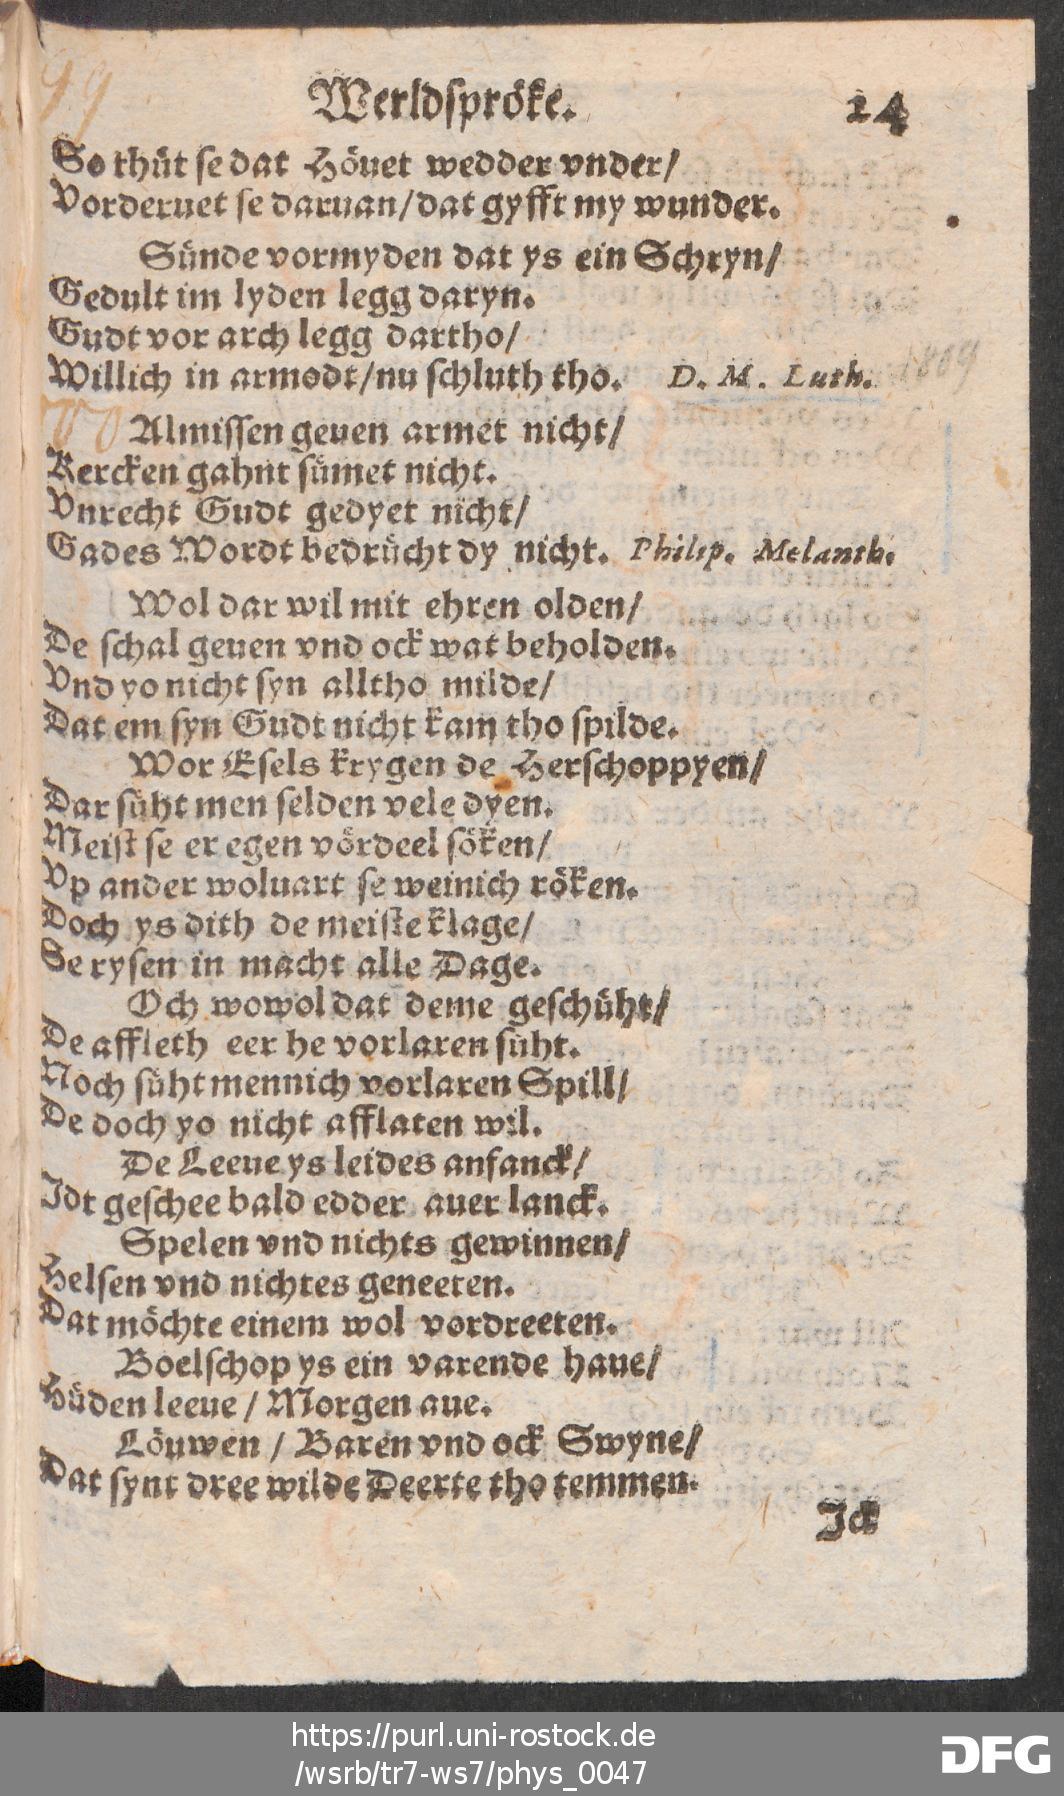 99
Werldspröke. 24
So thüt se dat Höuet wedder vnder/
Vorderuet se daruan/dat gyfft my wunder.
Sünde vormyden dat ys ein Schryn/
Gedult im lyden legg daryn.
Gudt vor arch legg dartho/
Willich in armodt/nu schluth tho. D. M. Luth. 1809
Almissen geuen armet nicht/
Kercken gahnt sümet nicht.
Vnrecht Gudt gedyet nicht/
Gades Wordt bedrücht dy nicht. Philip. Melanth.
Wol dar wil mit ehren olden/
De schal geuen vnd ock wat beholden.
Vnd yo nicht syn alltho milde/
Dat em syn Gudt nicht kam tho spilde.
Wor Esels krygen de Herschoppyen/
Dar süht men selden vele dyen.
Meist se er egen vördeel söken/
Vp ander woluart se weinich röken.
Doch ys dith de meiste klage/
Se rysen in macht alle Dage.
Och wowol dat deme geschüht/
De affleth eer he vorlaren süht.
Noch süht mennich vorlaren Spill/
De doch yo nicht afflaten wil.
De Leeue ys leides anfanck/
Idt geschee bald edder auer lanck.
Spelen vnd nichts gewinnen/
Helsen vnd nichtes geneeten.
Dat möchte einem wol vordreeten.
Boelschop ys ein varende haue/
Hüden leeue / Morgen aue.
Löuwen / Baren vnd ock Swyne/
Dat synt dree wilde Deerte tho temmen.
Ick
https://purl.uni-rostock.de
/wsrb/tr7-ws7/phys_0047
DFG